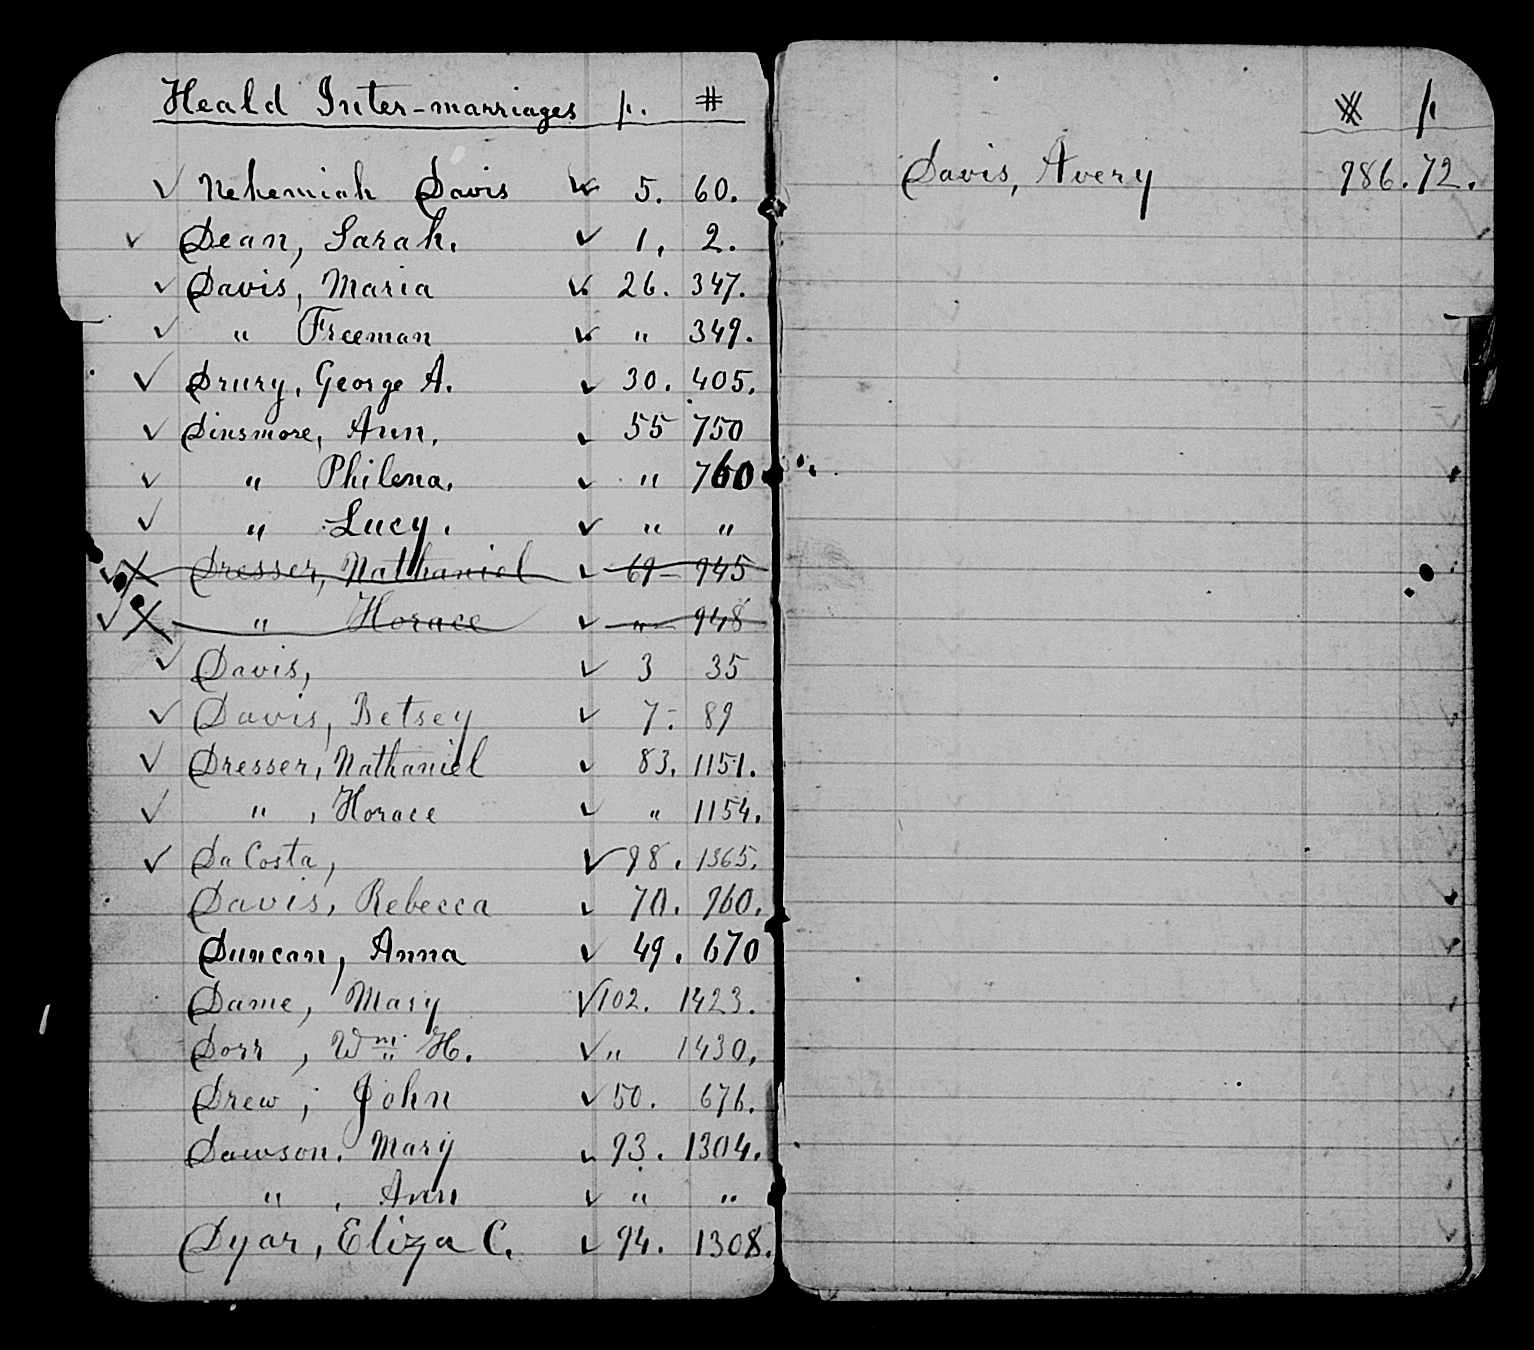 Heald Inter-marriages p. #
✓ Nehemiah Davis ✓ 5. 60.
✓ Dean, Sarah. ✓ 1, 2.
✓ Davis, Maria ✓ 26. 347.
✓ " Freeman ✓ " 349.
✓ Drury, George A. ✓ 30. 405.
✓ Dinsmore, Ann. ✓ 55 750
✓ " Philena. ✓ " 760
✓ " Lucy. ✓ " "
✓ X Dresser, Nathaniel ✓ 69 945
✓ X " Horace ✓ " 948
✓ Davis, ✓ 3 35
✓ Davis, Betsey ✓ 7. 89
✓ Dresser, Nathaniel ✓ 83. 1151.
✓ " , Horace ✓ " 1154.
✓ DaCosta, ✓ 98. 1365.
Davis, Rebecca ✓ 70. 960.
Duncan, Anna ✓ 49. 670
Dame, Mary ✓ 102. 1423.
Dorr, Wm. H. ✓ " 1430,
Drew, John ✓ 50. 676.
Dawson. Mary ✓ 93. 1304.
" , Ann ✓ " "
Dyar, Eliza C. ✓ 94. 1308.
# p
Davis, Avery 986. 72.